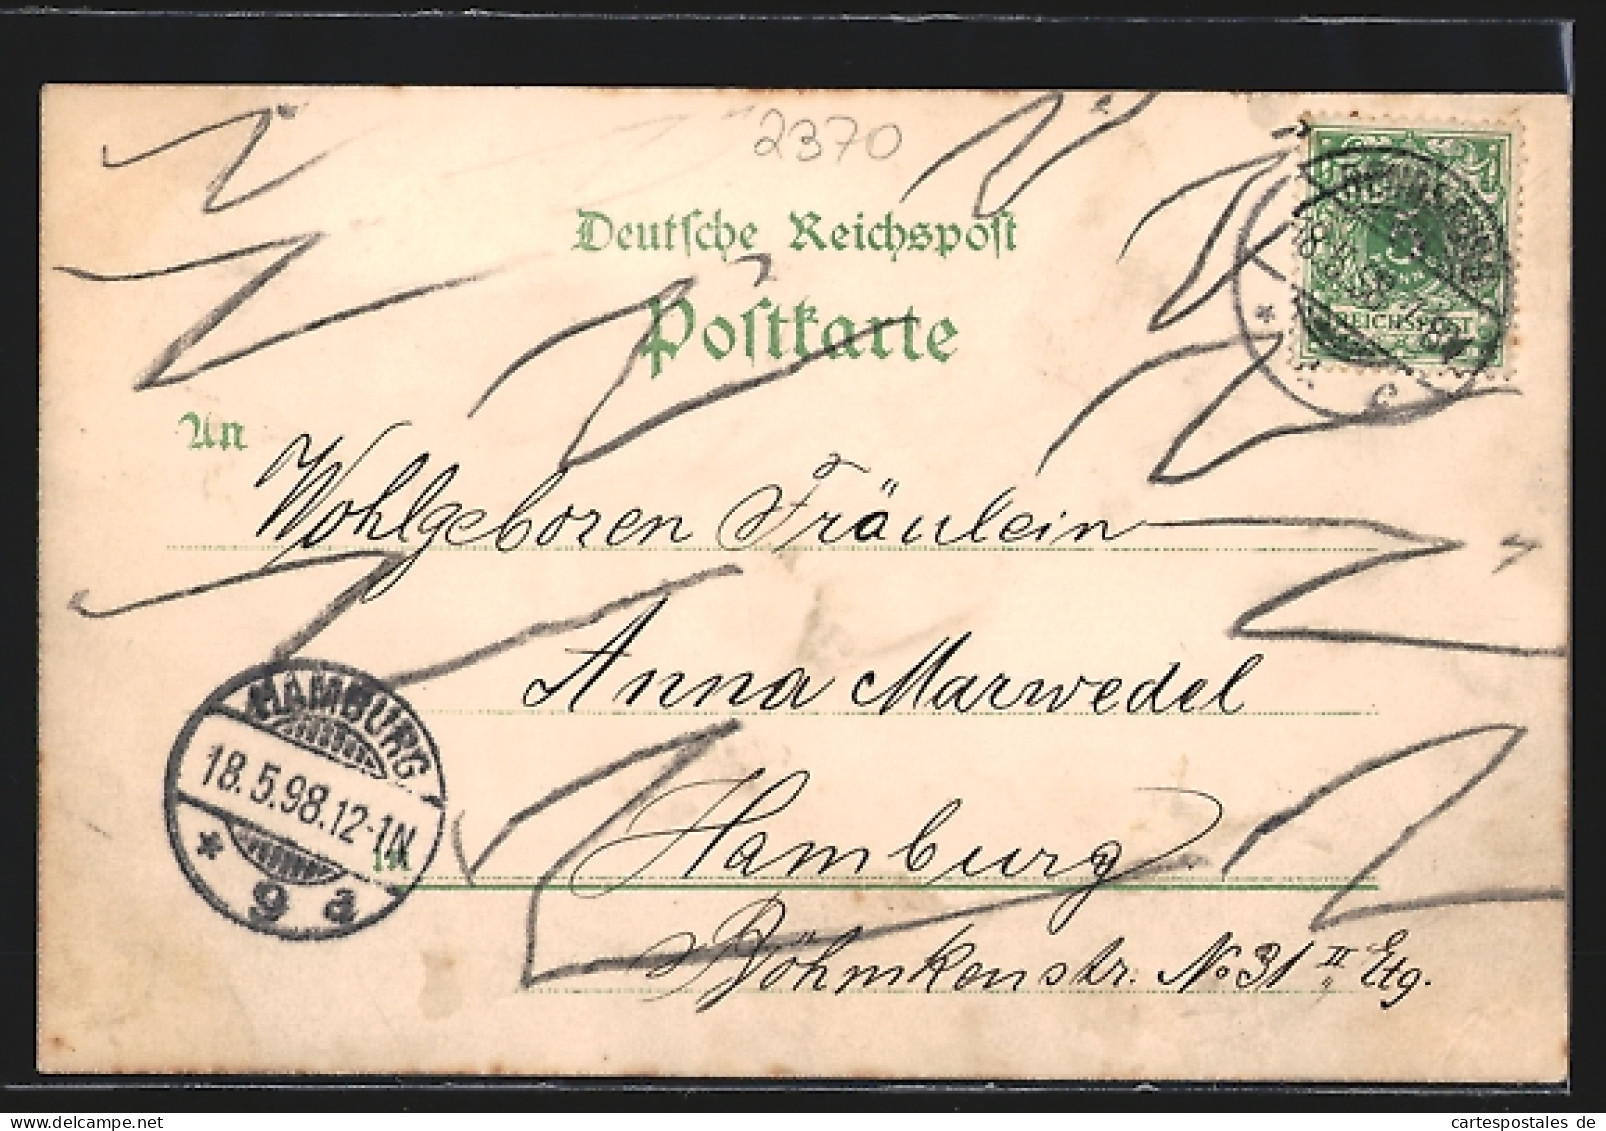 2370
Deutsche Reichspost
Postkarte
5
REICHSPOST
An
Wohlgeboren Fräulein
Anna Marwedel
HAMBURG
18.5.98.12-1N
* 9 a
in
Hamburg
Böhmkenstr. No 31 II Etg.
cartespostales de